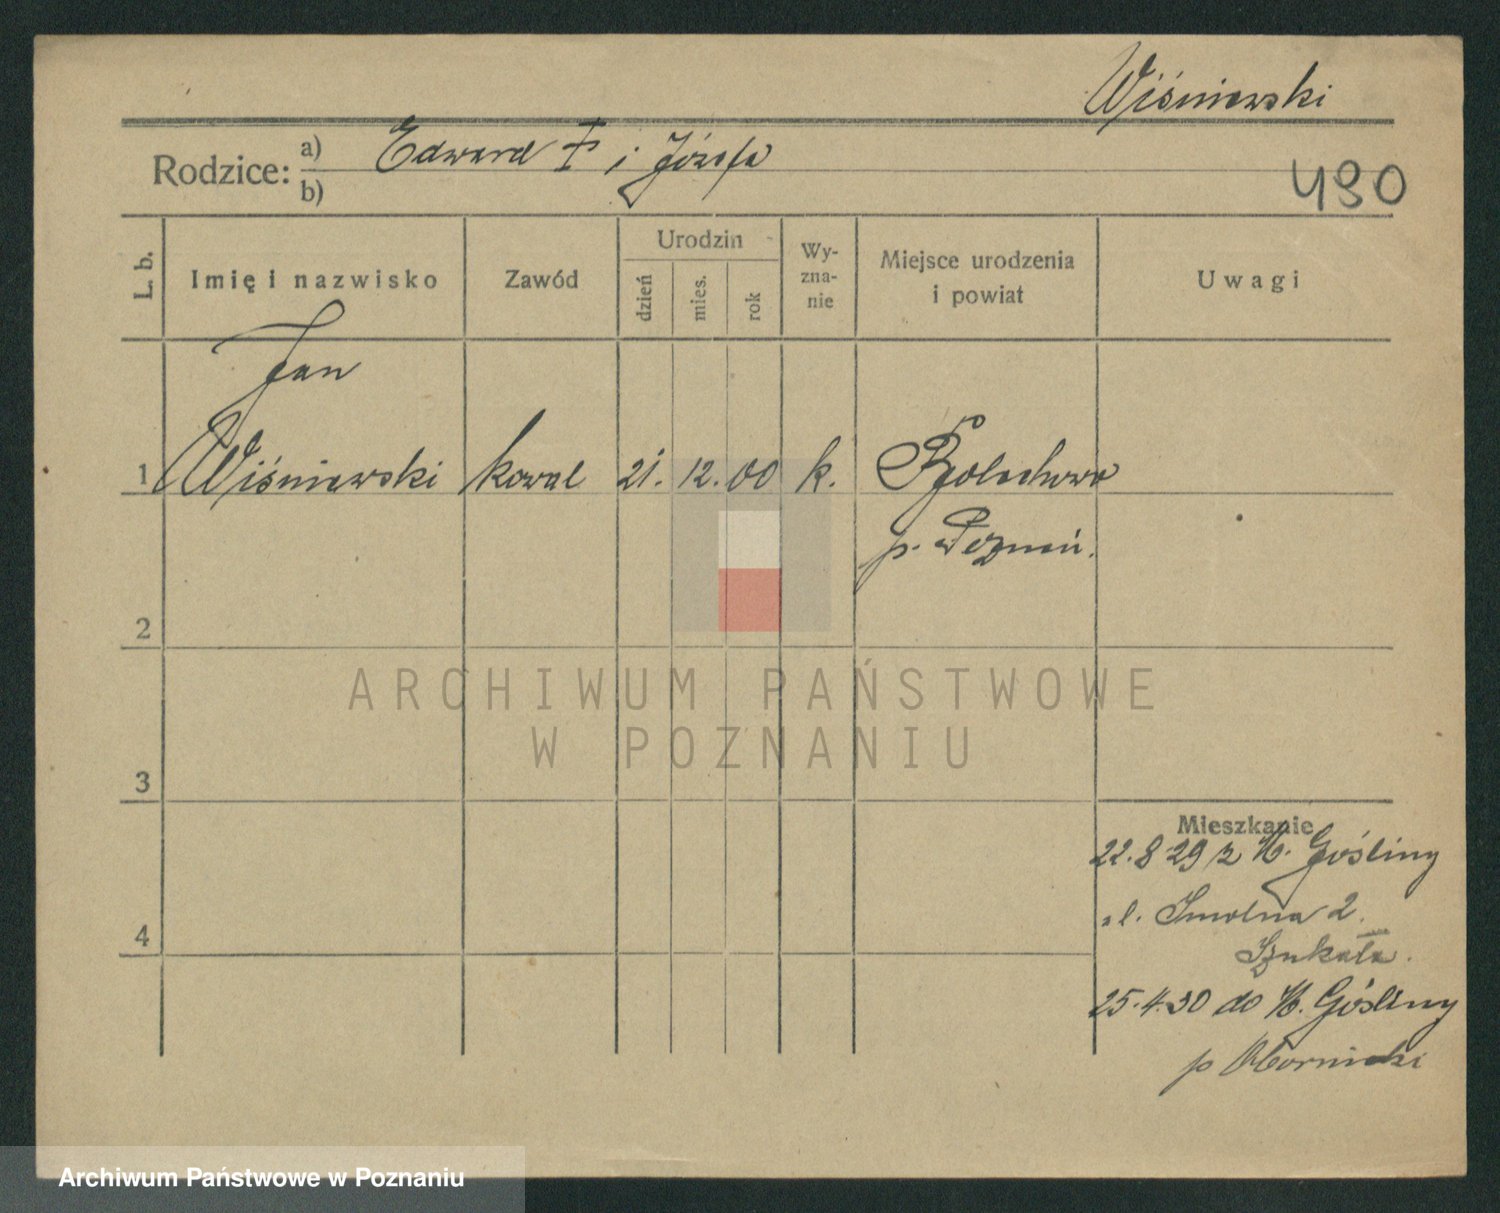 Wiśniewski
Rodzice: a) Edward † i Józefa
b)
490
L. b.
Imię i nazwisko
Zawód
Urodzin
dzień
mies.
rok
Wy-
zna-
nie
Miejsce urodzenia
i powiat
Uwagi
Jan
1 Wiśniewski kowal 21. 12. 00 k. Bolechowo
p. Poznań.
2
3
4
Mieszkanie
22.8 29 z M. Gośliny
ul. Smolna 2.
Szukała.
25.4.30 do M. Gośliny
p Obornicki
ARCHIWUM PAŃSTWOWE
W POZNANIU
Archiwum Państwowe w Poznaniu